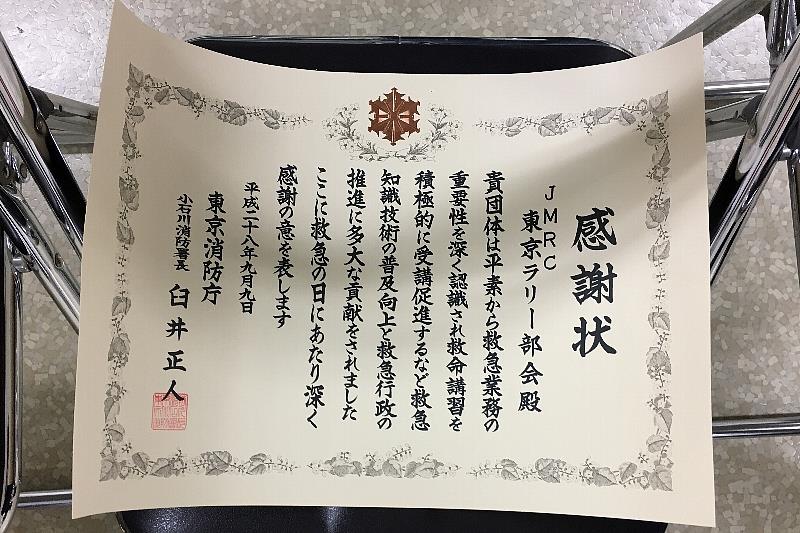 感謝状
JMRC
東京ラリー部会殿
貴団体は平素から救急業務の
重要性を深く認識され救命講習を
積極的に受講促進するなど救急
知識技術の普及向上と救急行政の
推進に多大な貢献をされました
ここに救急の日にあたり深く
感謝の意を表します
平成二十八年九月九日
東京消防庁
小石川消防署長
臼井正人